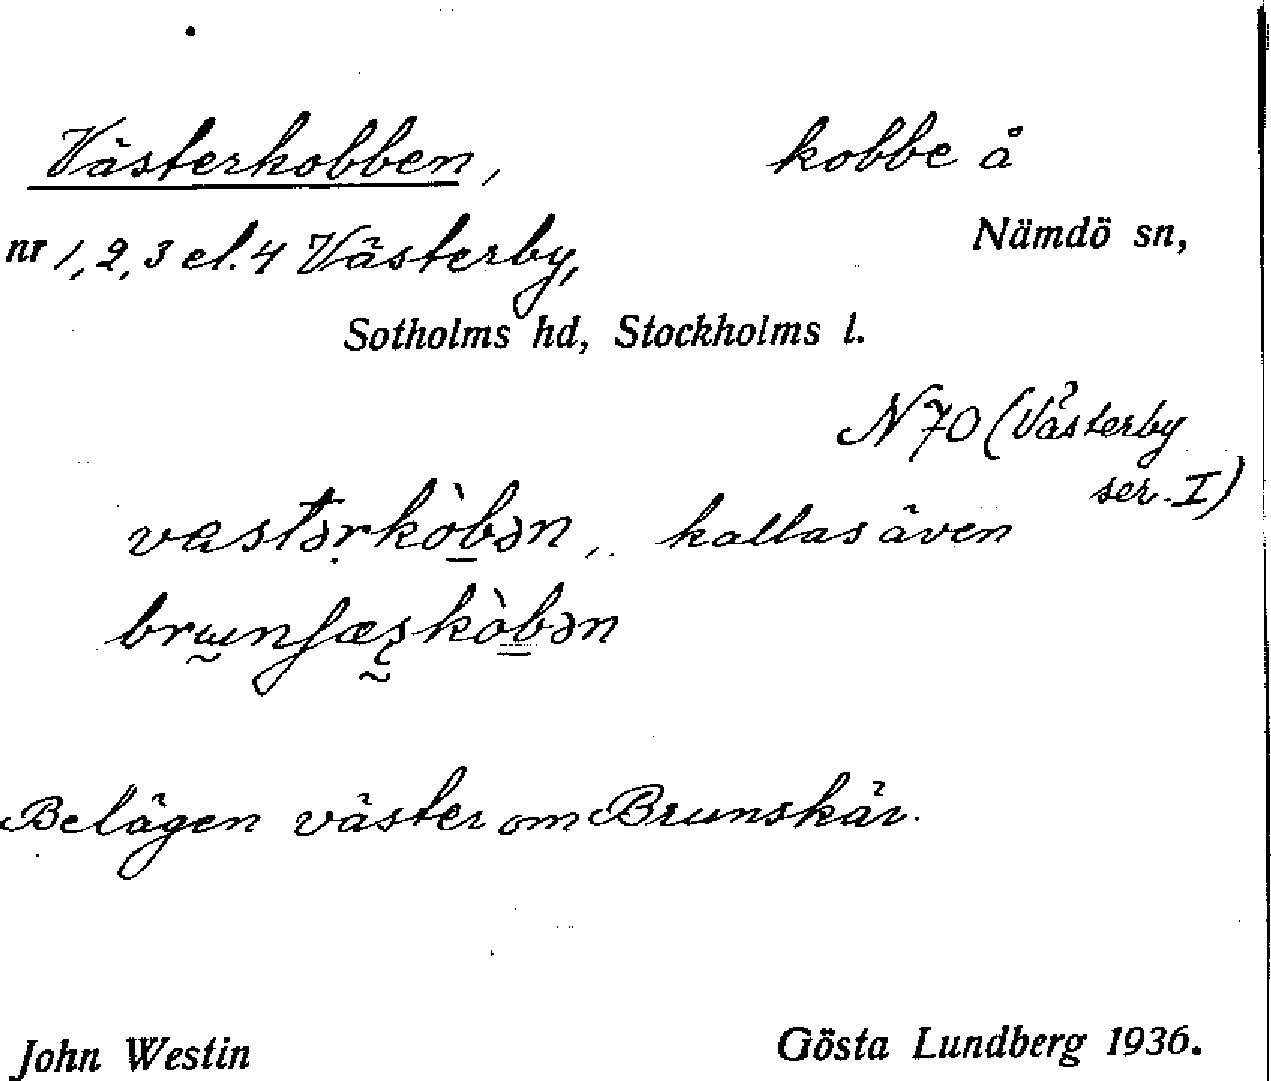 Västerkobben, kobbe å
nr 1, 2, 3 el. 4 Västerby, Nämdö sn,
Sotholms hd, Stockholms l.
N 70 (Västerby
ser. I)
vastərkòbən, kallas även
brɯnʃæʂkòbən
Belägen väster om Brunskär.
John Westin Gösta Lundberg 1936.